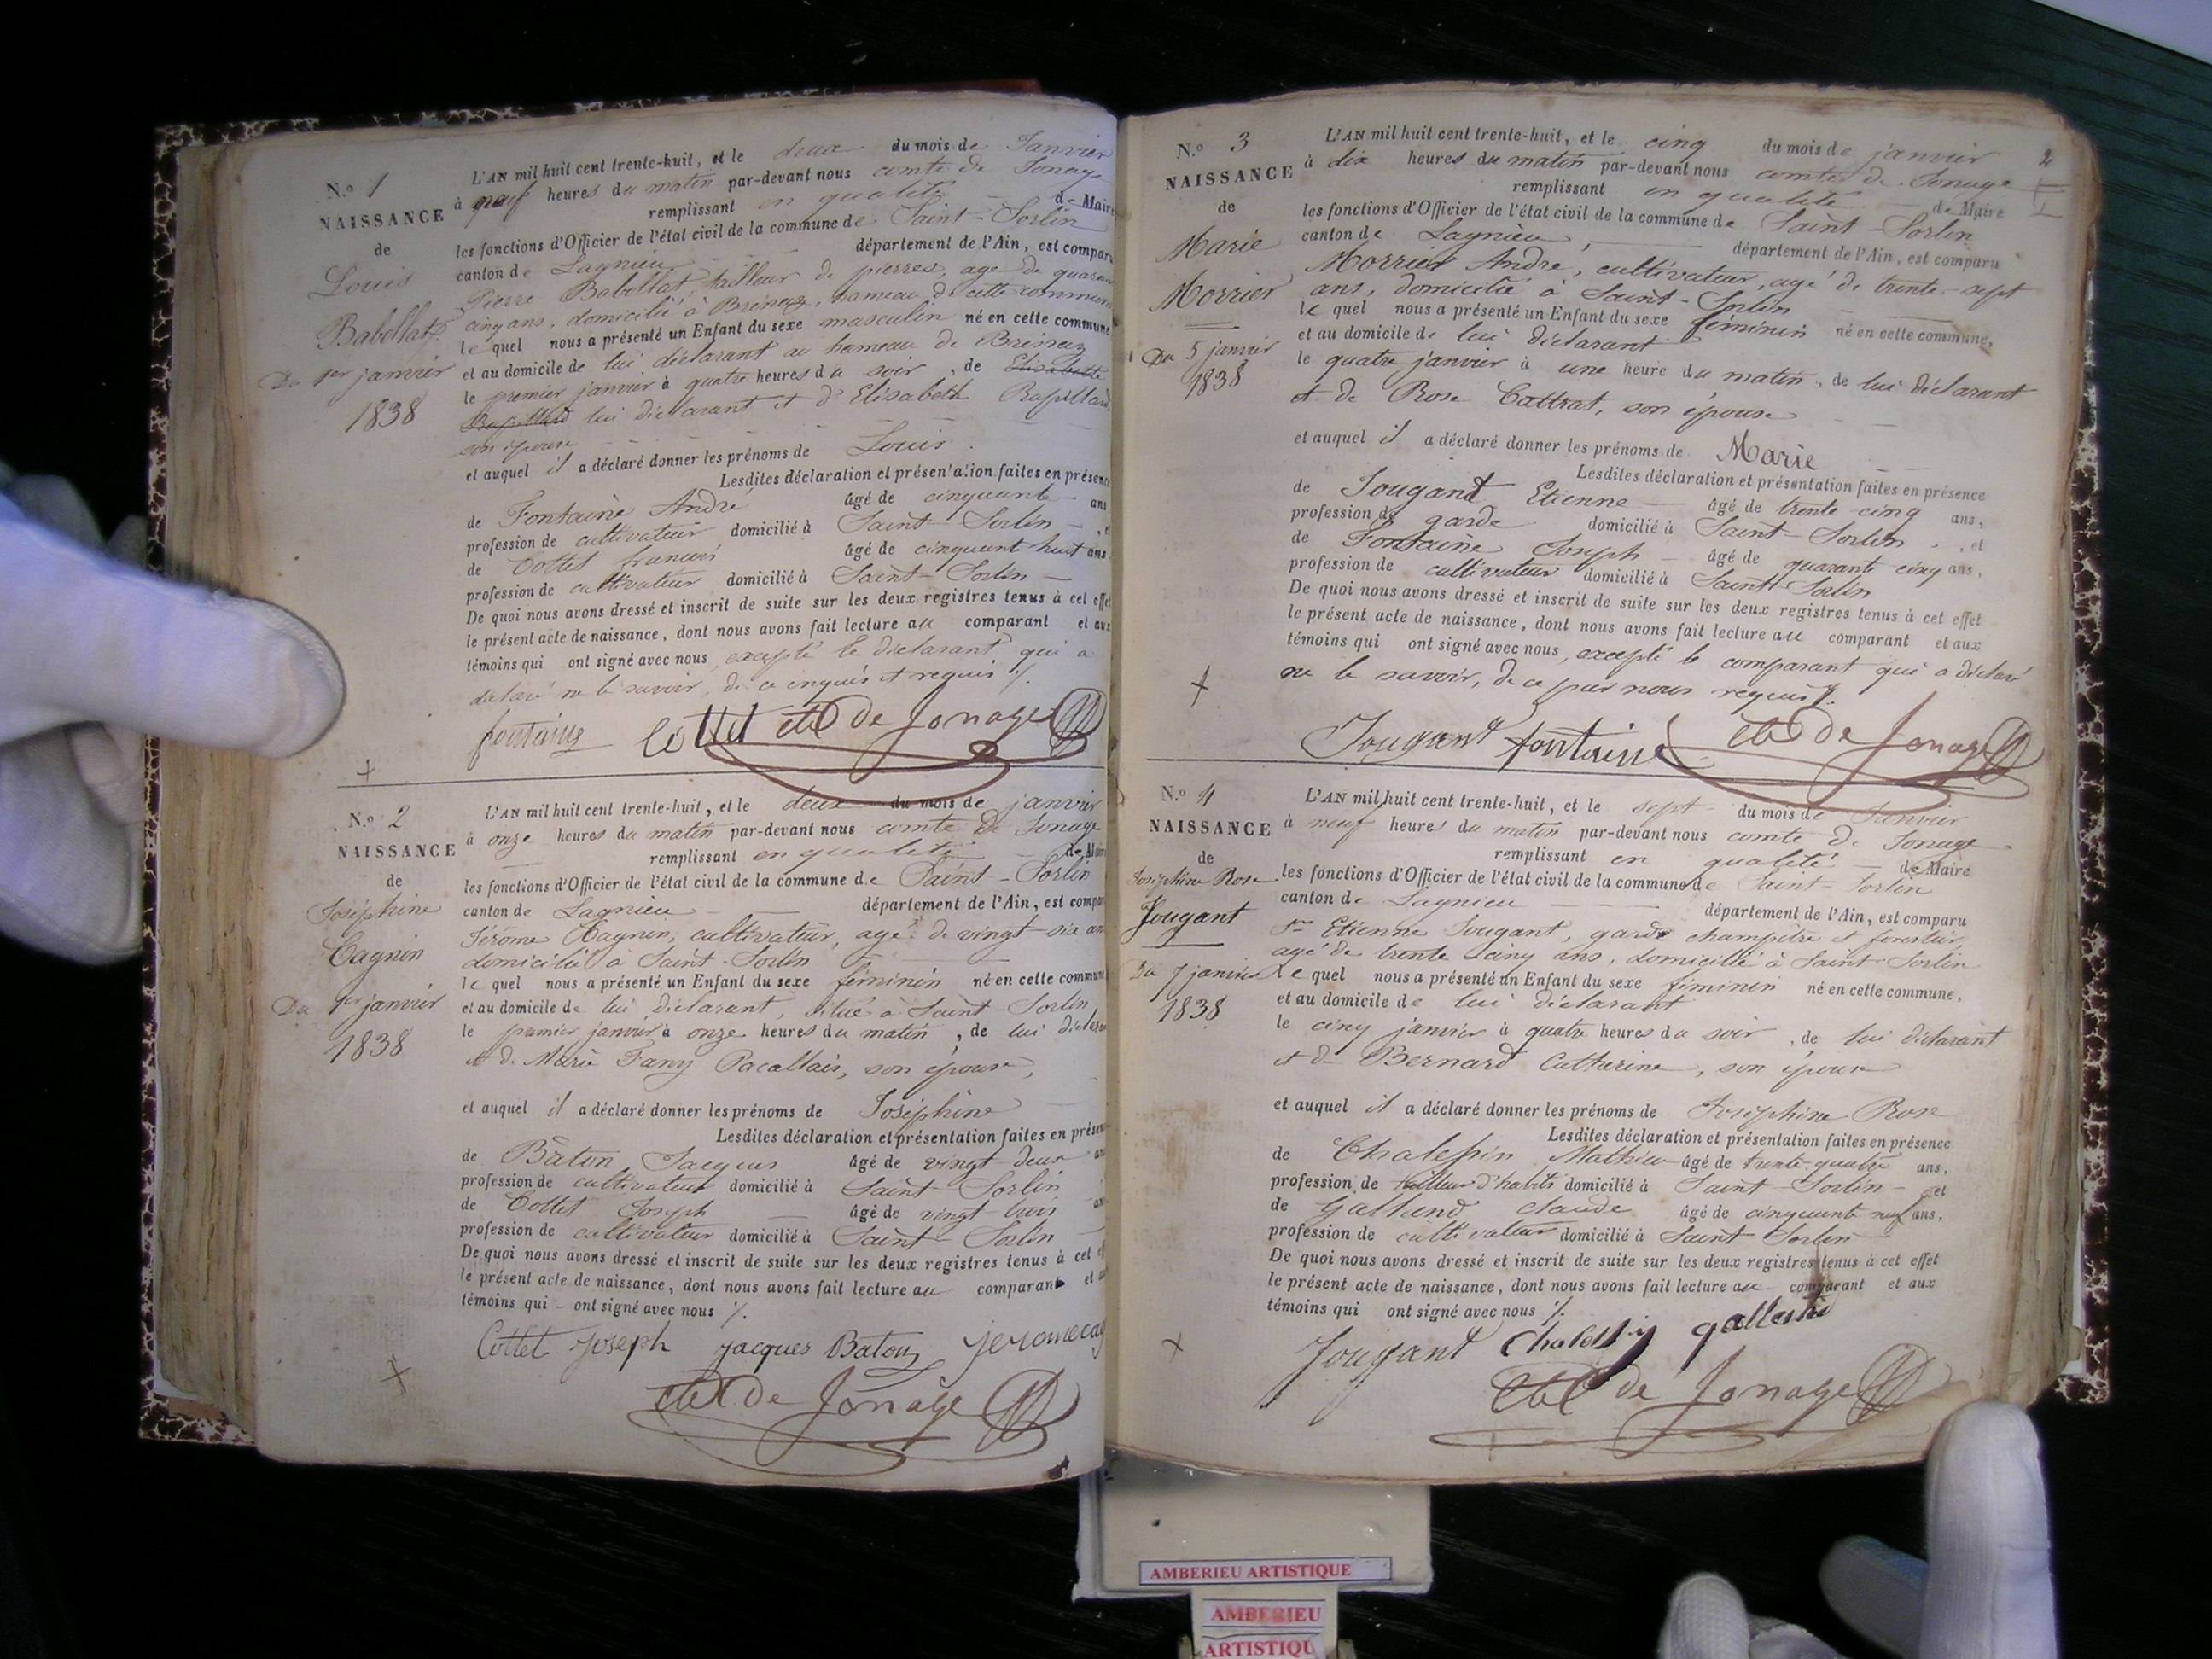 N.º 1
NAISSANCE
de
Louis
Babollat
Du 1er janvier
1838
L'AN mil huit cent trente-huit, et le deux du mois de Janvier
à neuf heures du matin par-devant nous comte de Jonage
remplissant en qualité de Maire
les fonctions d'Officier de l'état civil de la commune de Saint-Sorlin
canton de Lagnieu département de l'Ain, est comparu
Pierre Babollat, tailleur de pierres, agé de quarante
cinq ans, domicilié à Brénaz, hameau de cette commune
le quel nous a présenté un Enfant du sexe masculin né en cette commune
et au domicile de lui déclarant au hameau de Brénaz
le premier janvier à quatre heures du soir, de Elisabeth
Rapillard lui déclarant et d'Elisabeth Rapillard,
son épouse
et auquel il a déclaré donner les prénoms de Louis
Lesdites déclaration et présentation faites en présence
de Fontaine André âgé de cinquante ans
profession de cultivateur domicilié à Saint-Sorlin, et
de Cottet françois âgé de cinquant huit ans
profession de cultivateur domicilié à Saint-Sorlin
De quoi nous avons dressé et inscrit de suite sur les deux registres tenus à cet effet
le présent acte de naissance, dont nous avons fait lecture au comparant et aux
témoins qui ont signé avec nous, excepté le déclarant qui a
déclaré ne le savoir, de ce enquis et requis ./.
fontaine Cottet cte de Jonage
N.º 2
NAISSANCE
de
Joséphine
Cagnin
Du 1er janvier
1838
L'AN mil huit cent trente-huit, et le deux du mois de janvier
à onze heures du matin par-devant nous comte de Jonage
remplissant en qualité de Maire
les fonctions d'Officier de l'état civil de la commune de Saint-Sorlin
canton de Lagnieu département de l'Ain, est comparu
Jérôme Cagnin, cultivateur, agé de vingt-six ans
domicilié à Saint-Sorlin
le quel nous a présenté un Enfant du sexe féminin né en cette commune
et au domicile de lui déclarant, situé à Saint-Sorlin
le premier janvier à onze heures du matin, de lui déclarant
et de Marie Fany Pacallais, son épouse,
et auquel il a déclaré donner les prénoms de Joséphine
Lesdites déclaration et présentation faites en présence
de Bâton Jacques âgé de vingt-deux ans
profession de cultivateur domicilié à Saint-Sorlin
de Cottet Joseph âgé de vingt trois ans
profession de cultivateur domicilié à Saint-Sorlin
De quoi nous avons dressé et inscrit de suite sur les deux registres tenus à cet
le présent acte de naissance, dont nous avons fait lecture au comparant et
témoins qui ont signé avec nous ./.
Cottet Joseph jacques Baton jerome cag
cte de Jonage
2
N.º 3
NAISSANCE
de
Marie
Morrier
Du 5 janvier
1838
L'AN mil huit cent trente-huit, et le cinq du mois de janvier
à dix heures du matin par-devant nous comte de Jonage
remplissant en qualité de Maire
les fonctions d'Officier de l'état civil de la commune de Saint-Sorlin
canton de Lagnieu, département de l'Ain, est comparu
Morrier André, cultivateur, agé de trente-sept
ans, domicilié à Saint-Sorlin
le quel nous a présenté un Enfant du sexe féminin né en cette commune,
et au domicile de lui déclarant
le quatre janvier à une heure du matin, de lui déclarant
et de Rose Cattrat, son épouse
et auquel il a déclaré donner les prénoms de Marie
Lesdites déclaration et présentation faites en présence
de Jougant Etienne âgé de trente-cinq ans,
profession de garde domicilié à Saint-Sorlin, et
de Fontaine Joseph âgé de quarante cinq ans,
profession de cultivateur domicilié à Saint-Sorlin
De quoi nous avons dressé et inscrit de suite sur les deux registres tenus à cet effet
le présent acte de naissance, dont nous avons fait lecture au comparant et aux
témoins qui ont signé avec nous, excepté le comparant qui a déclaré
ne le savoir, de ce par nous requis ./.
Jougant fontaine cte de Jonage
N.º 4
NAISSANCE
de
Joséphine Rose
Jougant
Du 7 janvier
1838
L'AN mil huit cent trente-huit, et le sept du mois de Janvier
à neuf heures du matin par-devant nous comte de Jonage
remplissant en qualité de Maire
les fonctions d'Officier de l'état civil de la commune de Saint-Sorlin
canton de Lagnieu département de l'Ain, est comparu
Sr Etienne Jougant, garde champêtre et forestier,
agé de trente cinq ans, domicilié à Saint-Sorlin
Le quel nous a présenté un Enfant du sexe féminin né en cette commune,
et au domicile de lui déclarant
le cinq janvier à quatre heures du soir, de lui déclarant
et de Bernard Catherine, son épouse
et auquel il a déclaré donner les prénoms de Joséphine Rose
Lesdites déclaration et présentation faites en présence
de Chalessin Mathieu âgé de trente-quatre ans,
profession de tailleur d'habits domicilié à Saint-Sorlin et
de Galland claude âgé de cinquante neuf ans,
profession de cultivateur domicilié à Saint-Sorlin
De quoi nous avons dressé et inscrit de suite sur les deux registres tenus à cet effet
le présent acte de naissance, dont nous avons fait lecture au comparant et aux
témoins qui ont signé avec nous ./.
Jougant Chalessin galland
cte de Jonage
AMBERIEU ARTISTIQUE
AMBERIEU
ARTISTIQU